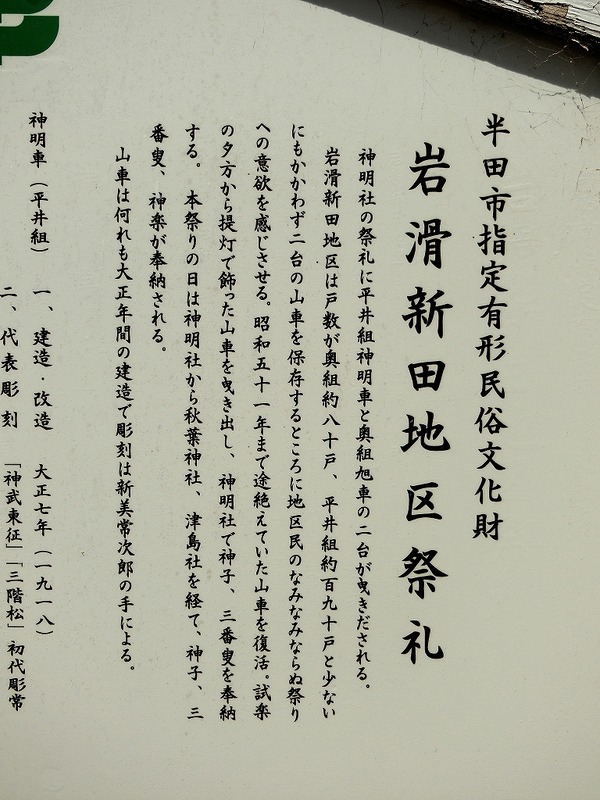 半田市指定有形民俗文化財
岩滑新田地区祭礼
神明社の祭礼に平井組神明車と奥組旭車の二台が曳きだされる。
岩滑新田地区は戸数が奥組約八十戸、平井組約百九十戸と少ない
にもかかわず二台の山車を保存するところに地区民のなみなみならぬ祭り
への意欲を感じさせる。昭和五十一年まで途絶えていた山車を復活。試楽
の夕方から提灯で飾った山車を曳き出し、神明社で神子、三番叟を奉納
する。 本祭りの日は神明社から秋葉神社、津島社を経て、神子、三
番叟、神楽が奉納される。
山車は何れも大正年間の建造で彫刻は新美常次郎の手による。
神明車(平井組) 一、建造・改造 大正七年(一九一八)
二、代表彫刻 「神武東征」「三階松」初代彫常